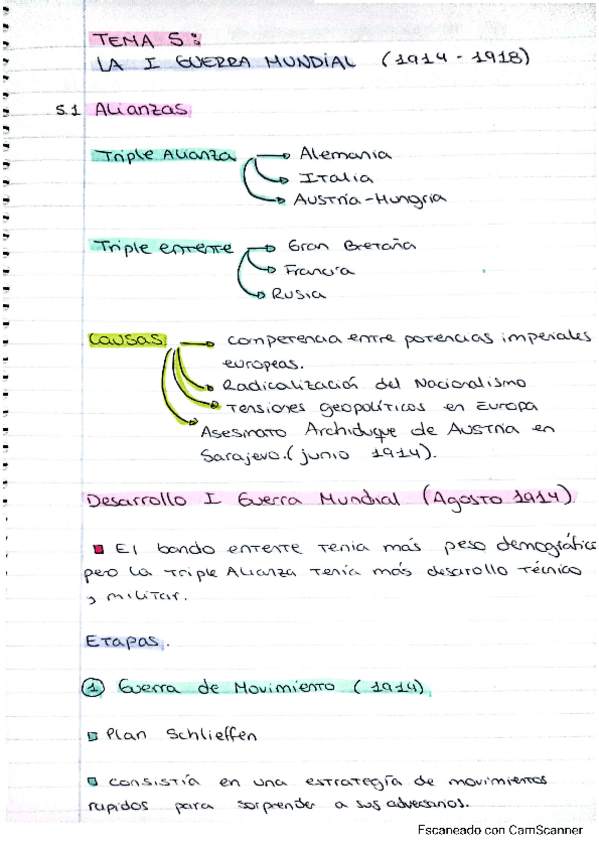 TEMA 5:
LA I GUERRA MUNDIAL (1914-1918)
5.1 Alianzas
Triple Alianza → Alemania
→ Italia
→ Austria-Hungría
Triple entente → Gran Bretaña
→ Francia
→ Rusia
Causas → competencia entre potencias imperiales
europeas.
→ Radicalización del Nacionalismo
→ Tensiones geopolíticos en Europa
→ Asesinato Archiduque de Austria en
Sarajevo. (junio 1914).
Desarrollo I Guerra Mundial (Agosto 1914)
El bando entente tenia más peso demográfico
pero la Triple Alianza tenía más desarollo técnico
y militar.
Etapas.
① Guerra de Movimiento (1914)
Plan Schlieffen
consistía en una estrategía de movimientos
rupidos para sorprender a sus adversarios.
Escaneado con CamScanner